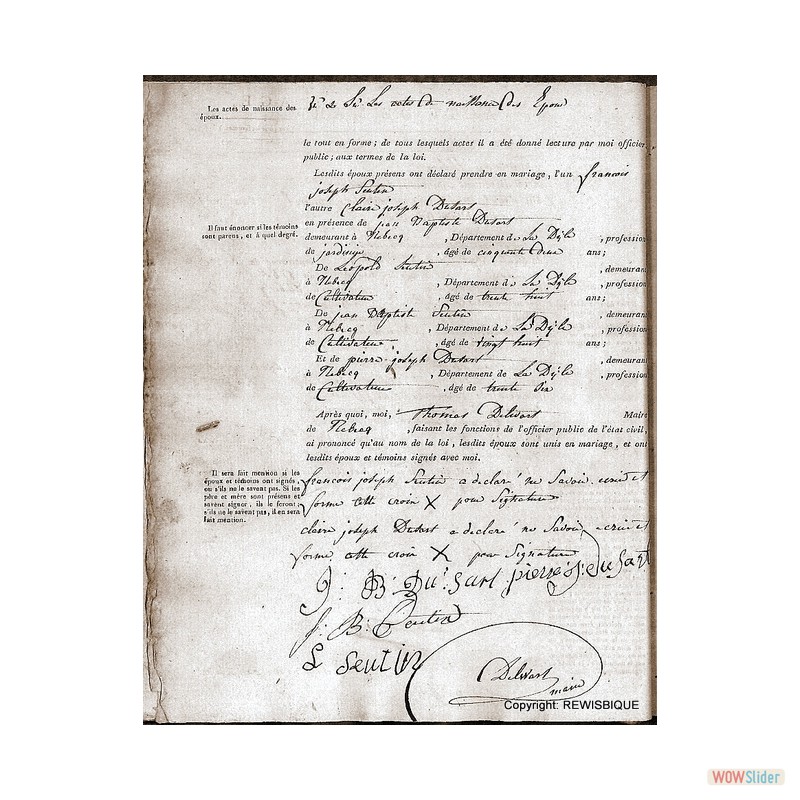 Les actes de naissance des
époux.
N° 2 Les actes de naissance des Epoux
le tout en forme ; de tous lesquels actes il a été donné lecture par moi officier
public ; aux termes de la loi.
Lesdits époux présens ont déclaré prendre en mariage, l'un françois
joseph Seutin
l'autre Claire joseph Dusart
Il faut énoncer si les témoins
sont parens, et à quel degré.
en présence de jean Baptiste Dusart
demeurant à Rebecq , Département de La Dyle , profession
de , âgé de cinquante deux ans ;
De Léopold Seutin , demeurant
à Rebecq , Département de La Dyle , profession
de Cultivateur , âgé de trente huit ans ;
De jean Baptiste Seutin , demeurant
à Rebecq , Département de La Dyle , profession
de Cultivateur , âgé de vingt huit ans ;
Et de pierre joseph Dusart , demeurant
à Rebecq , Département de La Dyle , profession
de Cultivateur , âgé de trente Six
Après quoi, moi, Thomas Delwart Maire
de Rebecq , faisant les fonctions de l'officier public de l'état civil,
ai prononcé qu'au nom de la loi, lesdits époux sont unis en mariage, et ont
lesdits époux et témoins signés avec moi.
Il sera fait mention si les
époux et témoins ont signés,
ou s'ils ne le savent pas. Si les
père et mère sont présens et
savent signer, ils le feront ;
s'ils ne le savent pas, il en sera
fait mention.
françois joseph Seutin a declaré ne Savoir et
forme cette croix X pour Signature
claire joseph Dusart a declaré ne Savoir et
forme cette croix X pour Signature
J: B: Du: Sart pierre j: du sart
j: B: Seutin
L Seutin
Delwart
maire
Copyright: REWISBIQUE
WOWSlider